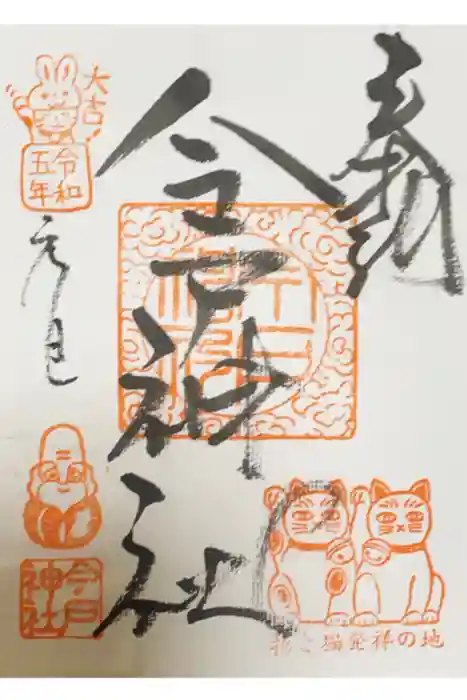 奉拝
今戸神社
大吉!
令和
五年
元旦
今戸
神社
招き猫発祥の地